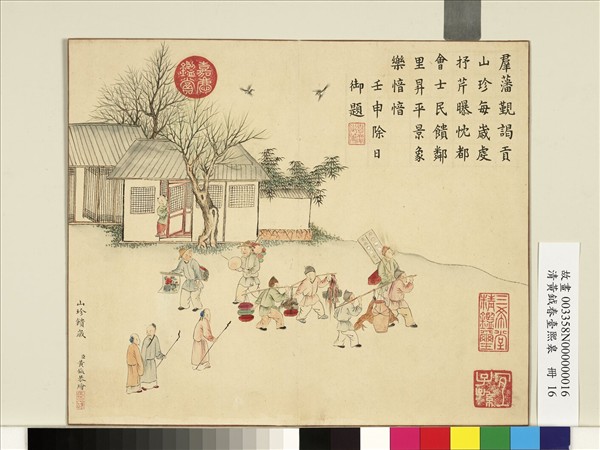 羣藩覲謁貢
山珍每歲虔
抒芹曝忱都
會士民饋鄰
里昇平景象
樂愔愔
壬申除日
御題
嘉慶
鑑賞
三希堂
精鑑璽
宜子孫
山珍饋歲
臣黃鉞恭繪
故畫 003358N000000016
清黃鉞春臺熙皞 冊 16